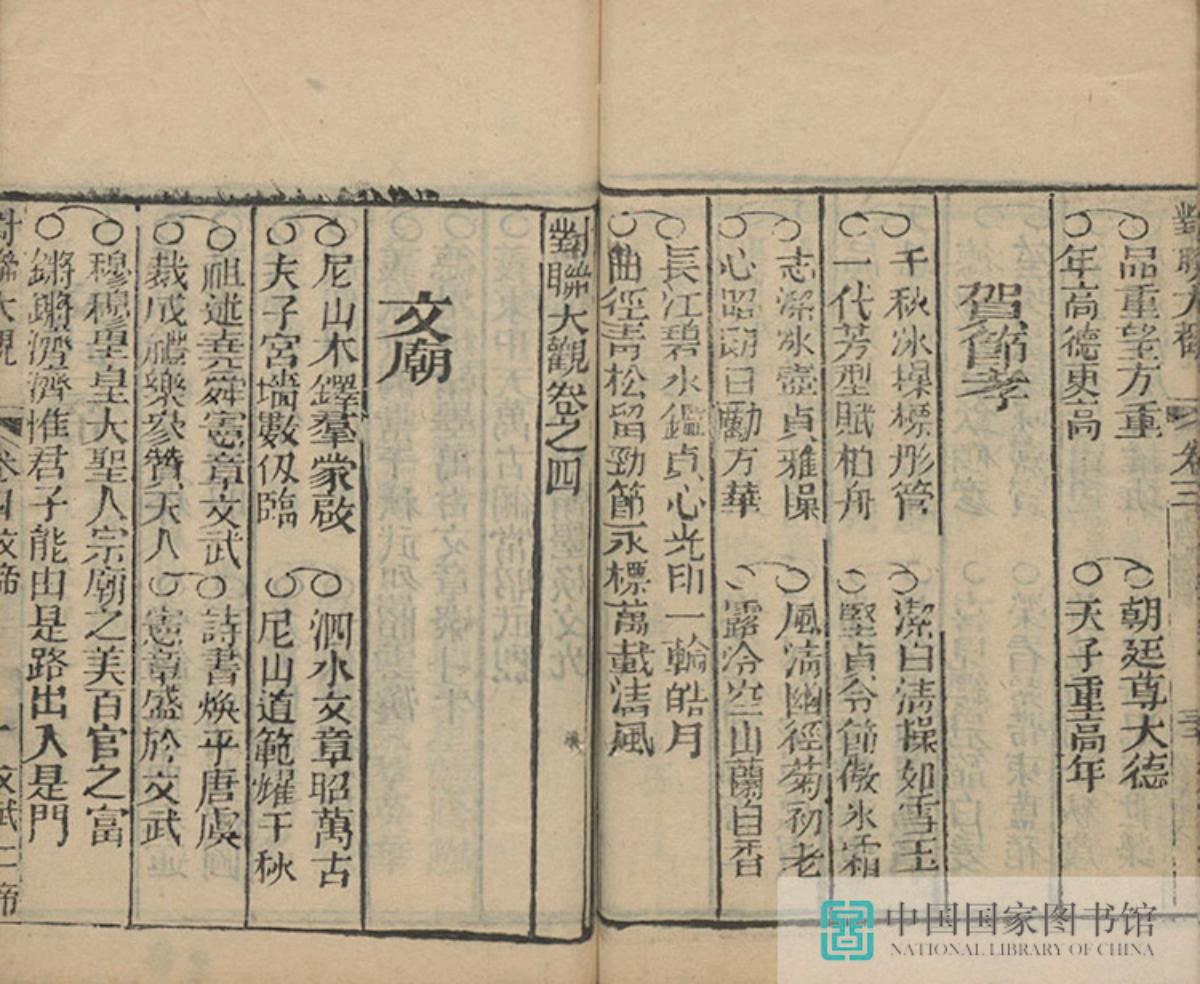 對聯大觀
卷三
品重望方重
年高德更高
朝廷尊大德
天子重高年
賀節孝
千秋冰操標彤管
一代芳型賦柏舟
潔白清操如雪玉
堅貞令節傲冰霜
志潔冰壺貞雅操
心昭朗日勵方華
風清幽徑菊初老
露冷空山蘭自香
長江碧水鑑貞心光印一輪皓月
曲徑青松留勁節永標萬載清風
對聯大觀卷之四
文廟
尼山木鐸羣蒙啟
夫子宮墻數仭臨
泗水文章昭萬古
尼山道範耀千秋
祖述堯舜憲章文武
裁成禮樂參贊天人
詩書煥乎唐虞
憲章盛於文武
穆穆皇皇大聖人宗廟之美百官之富
鏘鏘濟濟惟君子能由是路出入是門
對聯大觀
卷四文帝
一
文武二帝
中国国家图书馆
NATIONAL LIBRARY OF CHINA